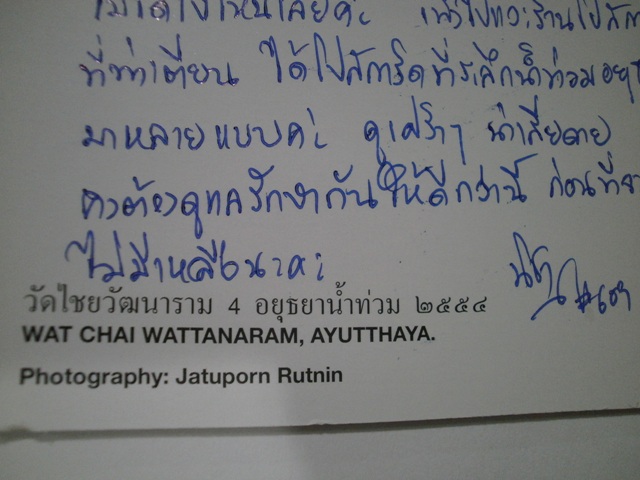 ไม่ได้ไปไหนเลยค่ะ แค่ไปแวะร้านโปส
ที่ท่าเตียน ได้โปสการ์ดที่ระลึกน้ำท่วมอยุธ
มาหลายแบบค่ะ ดูเศร้าๆ น่าเสียดาย
คงต้องดูแลรักษากันให้ดีกว่านี้ ก่อนที่จะ
ไม่มีเหลือนะคะ
วัดไชยวัฒนาราม 4 อยุธยาน้ำท่วม ๒๕๕๔
WAT CHAI WATTANARAM, AYUTTHAYA.
Photography: Jatuporn Rutnin